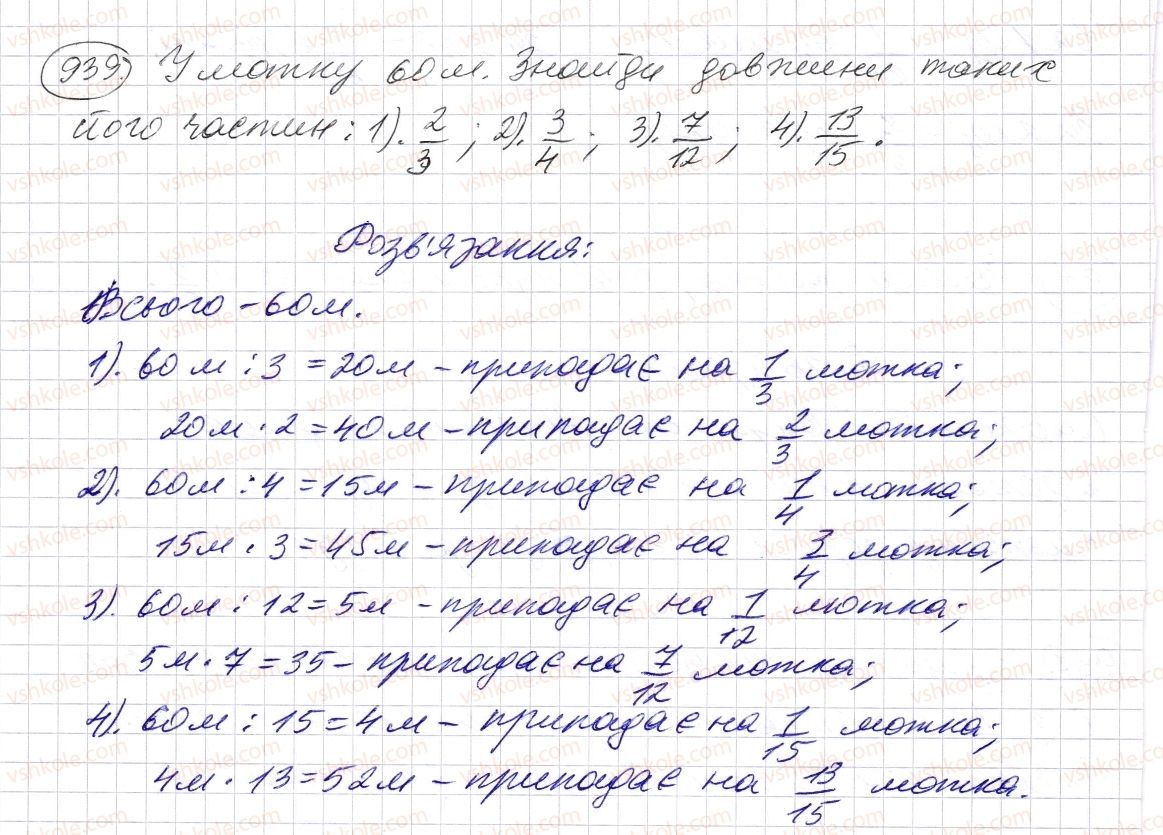 939. У мотку 60 м. Знайди довжини таких
його частин: 1). 2/3; 2). 3/4; 3). 7/12; 4). 13/15.
Розв'язання:
Всього - 60 м.
1). 60 м : 3 = 20 м - припадає на 1/3 мотка;
20 м · 2 = 40 м - припадає на 2/3 мотка;
2). 60 м : 4 = 15 м - припадає на 1/4 мотка;
15 м · 3 = 45 м - припадає на 3/4 мотка;
3). 60 м : 12 = 5 м - припадає на 1/12 мотка;
5 м · 7 = 35 - припадає на 7/12 мотка;
4). 60 м : 15 = 4 м - припадає на 1/15 мотка;
4 м · 13 = 52 м - припадає на 13/15 мотка.